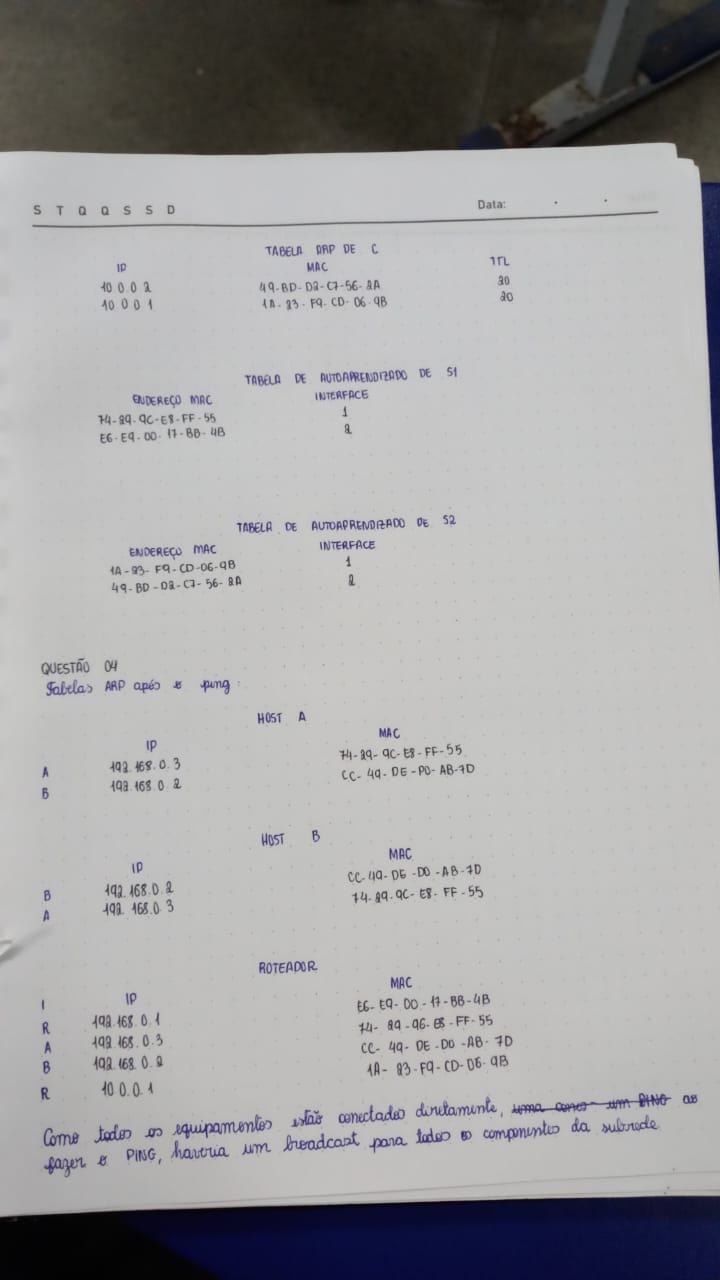 S T Q Q S S D Data: . .
TABELA ARP DE C
IP MAC TTL
10 0.0 2 49-BD-D2-C7-56-2A 20
10 0 0 1 1A-23-F9-CD-06-9B 20
TABELA DE AUTOAPRENDIZADO DE S1
ENDEREÇO MAC INTERFACE
74-29-9C-E8-FF-55 1
E6-E9-00-17-BB-4B 2
TABELA DE AUTOAPRENDIZADO DE S2
ENDEREÇO MAC INTERFACE
1A-23-F9-CD-06-9B 1
49-BD-D2-C7-56-2A 2
QUESTÃO 04
Tabelas ARP após o ping:
HOST A
IP MAC
A 192.168.0.3 74-29-9C-E8-FF-55
B 192.168.0.2 CC-49-DE-D0-AB-7D
HOST B
IP MAC
B 192.168.0.2 CC-49-DE-D0-AB-7D
A 192.168.0.3 74-29-9C-E8-FF-55
ROTEADOR
I IP MAC
R 192.168.0.1 E6-E9-00-17-BB-4B
A 192.168.0.3 74-29-96-E8-FF-55
B 192.168.0.2 CC-49-DE-D0-AB-7D
R 10 0.0.1 1A-23-F9-CD-06-9B
Como todos os equipamentos estão conectados diretamente, um PING ao
fazer o PING, haveria um broadcast para todos os componentes da subrede